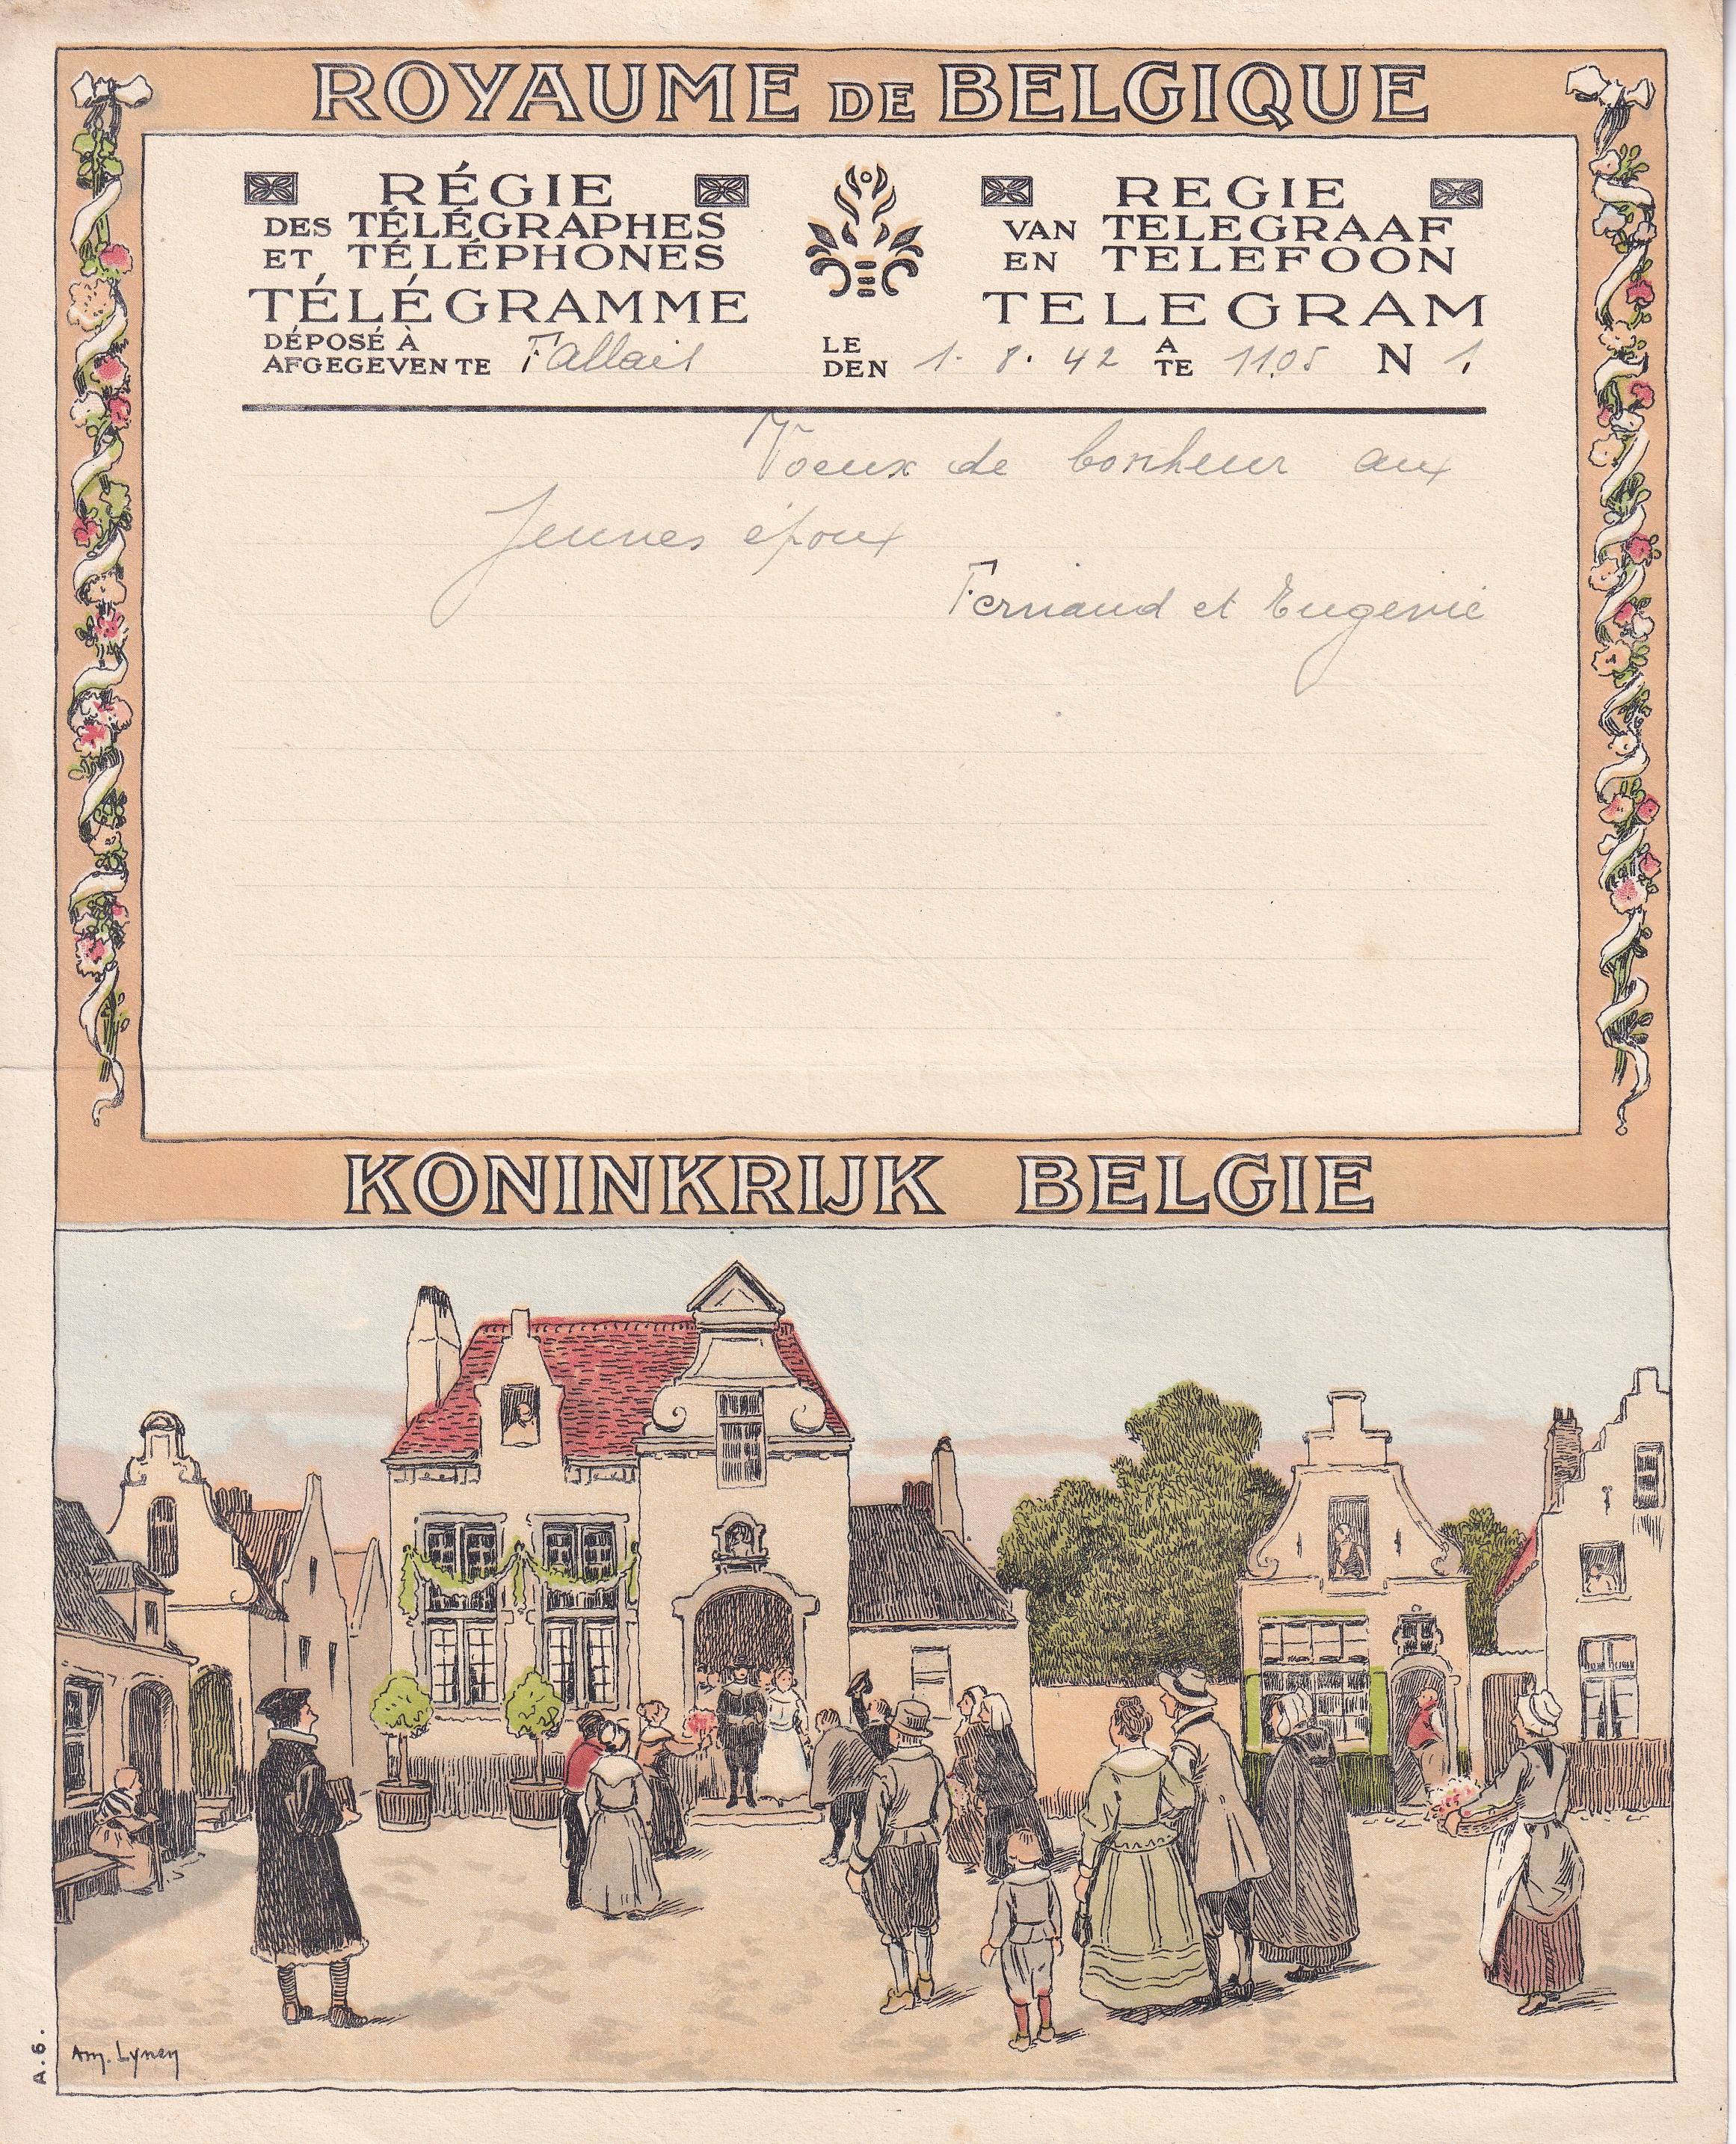 ROYAUME DE BELGIQUE
RÉGIE
DES TÉLÉGRAPHES
ET TÉLÉPHONES
TÉLÉGRAMME
REGIE
VAN TELEGRAAF
EN TELEFOON
TELEGRAM
DÉPOSÉ À
AFGEGEVEN TE Fallais
LE
DEN 1. 8. 42
A
TE 11.05 N 1.
Voeux de bonheur aux
Jeunes époux
Fernand et Eugenie
KONINKRIJK BELGIE
A.6.
Am. Lynen